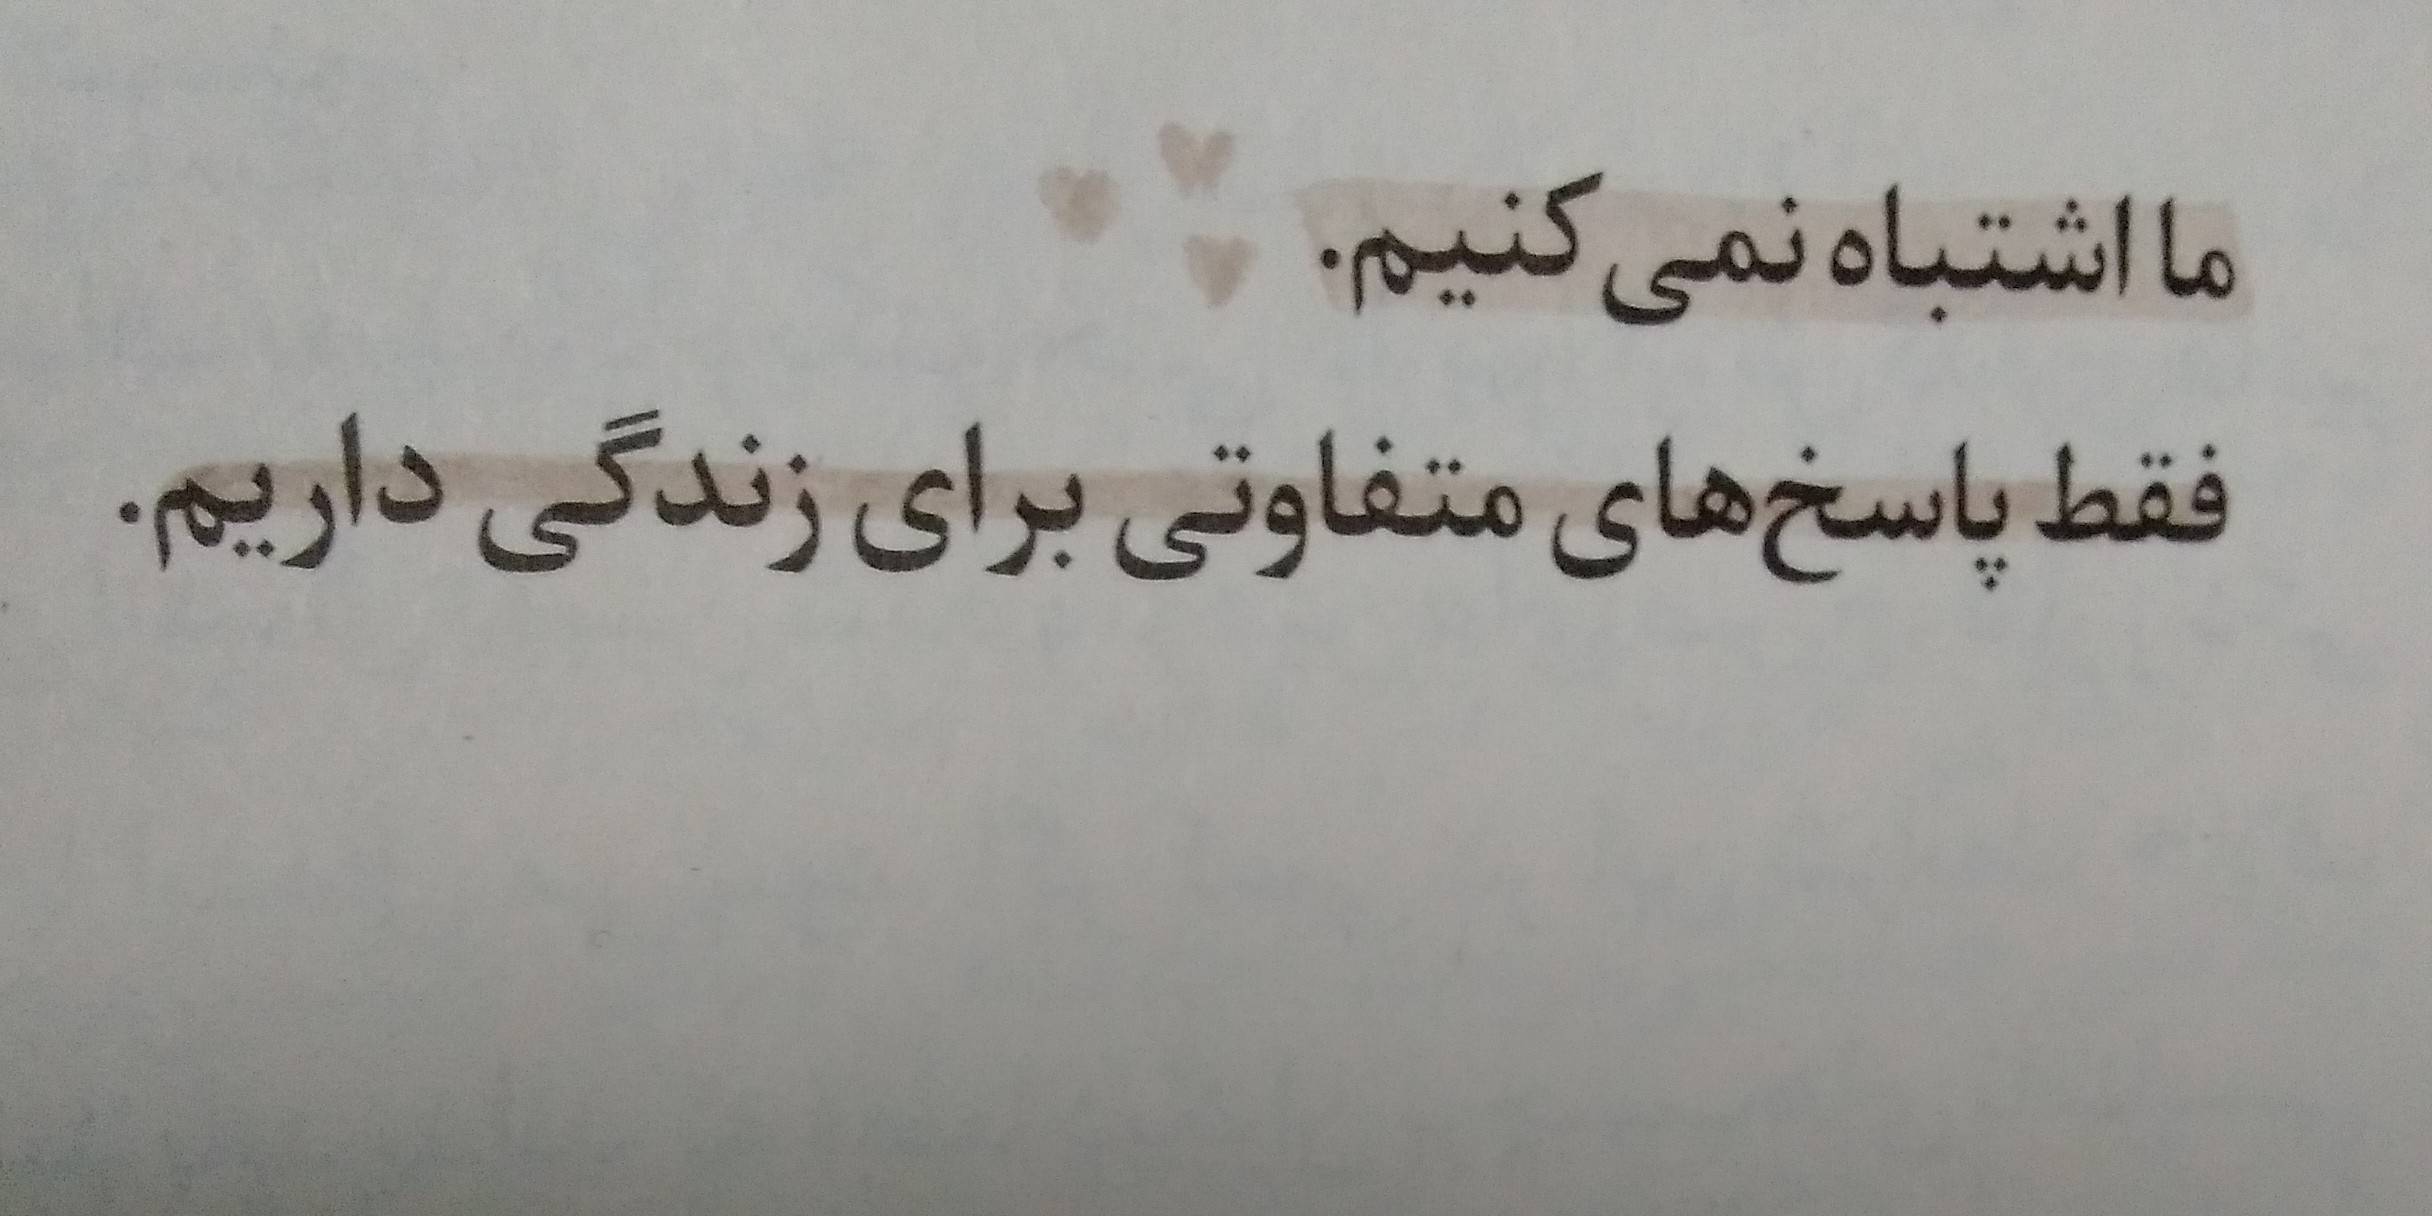 ما اشتباه نمی‌کنیم.
فقط پاسخ‌های متفاوتی برای زندگی داریم.